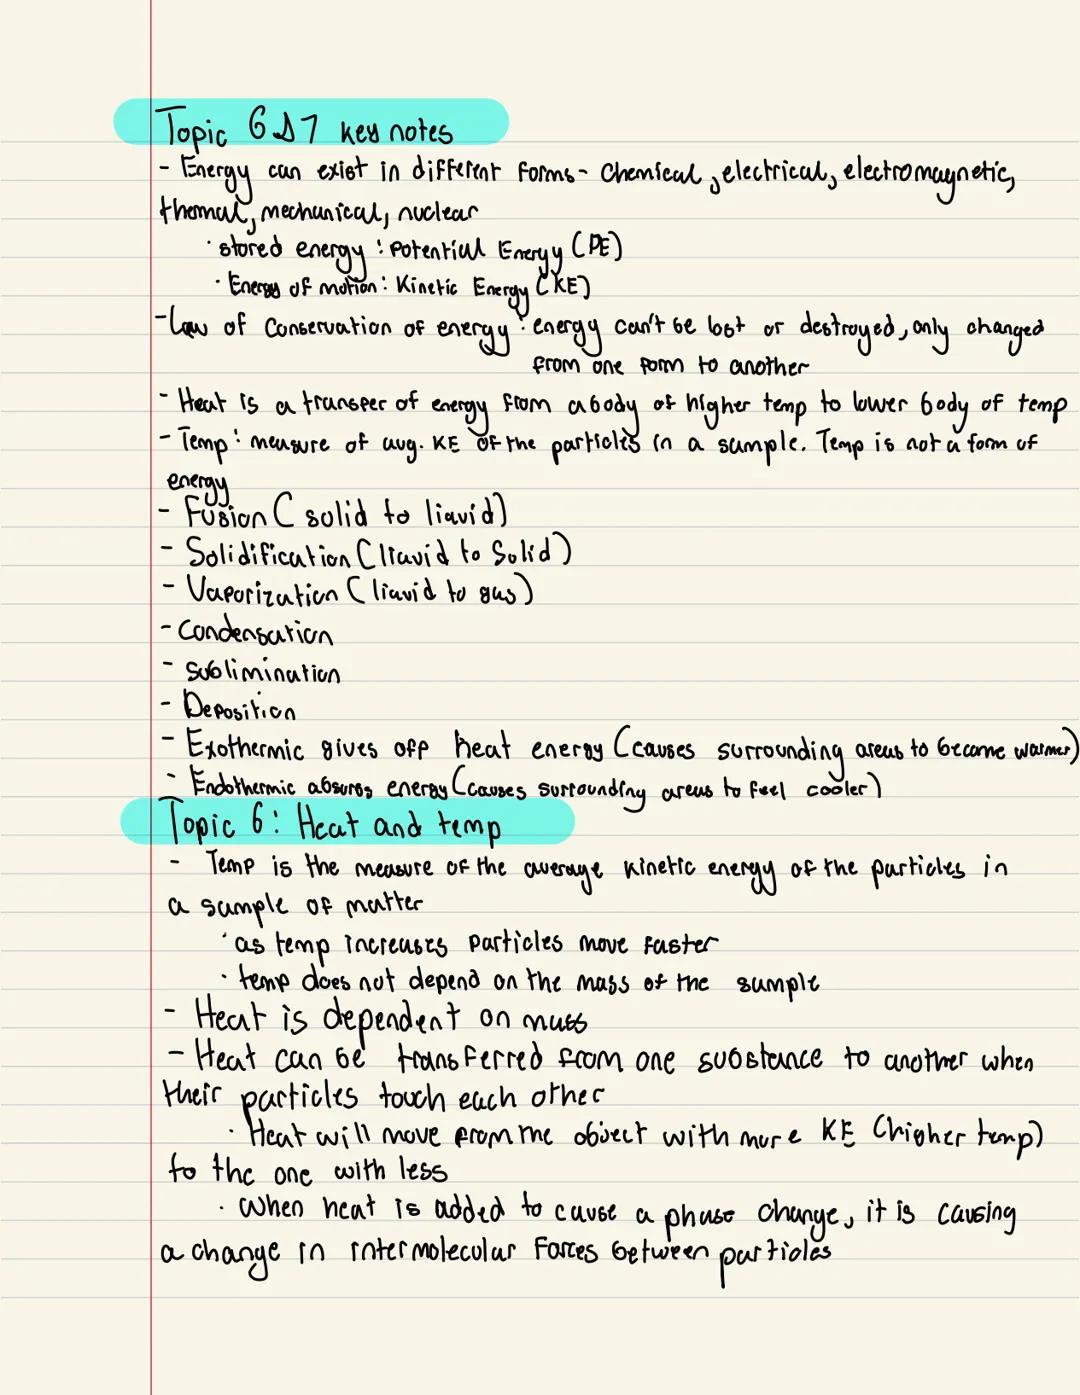 Topic 6&7 key notes
- Energy can exist in different forms- Chemical, electrical, electromagnetic,
thermal, mechanical, nuclear
· stored energy: Potential Energy (PE)
· Energy of motion: Kinetic Energy (KE)
- Law of Conservation of energy: energy can't be lost or destroyed, only changed
from one form to another
- Heat is a transfer of energy from a body of higher temp to lower body of temp
- Temp: measure of avg. KE of the particles in a sample. Temp is not a form of
energy
- Fusion (solid to liquid)
- Solidification (liquid to Solid)
- Vaporization (liquid to gas)
- Condensation
- sublimination
- Deposition
- Exothermic gives off heat energy (causes surrounding areas to become warmer)
- Endothermic absorbs energy (causes surrounding areas to feel cooler)
Topic 6: Heat and temp
- Temp is the measure of the average kinetic energy of the particles in
a sample of matter
· as temp increases particles move faster
· temp does not depend on the mass of the sample
- Heat is dependent on mass
- Heat can be transferred from one substance to another when
their particles touch each other
· Heat will move from the object with more KE (higher temp)
to the one with less
· When heat is added to cause a phase change, it is causing
a change in intermolecular forces between particles